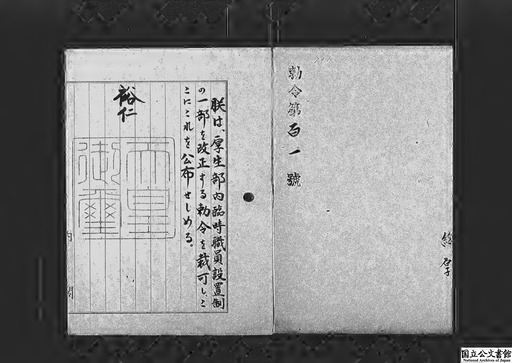 勅令第百一號
朕は、厚生部内臨時職員設置制
の一部を改正する勅令を裁可し、こ
こにこれを公布せしめる。
裕仁
天皇
御璽
国立公文書館
National Archives of Japan